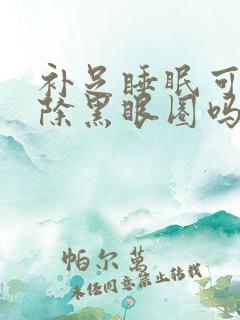 补足睡眠可
除黑眼圈吗
帕尔萬
未经同意禁止转载